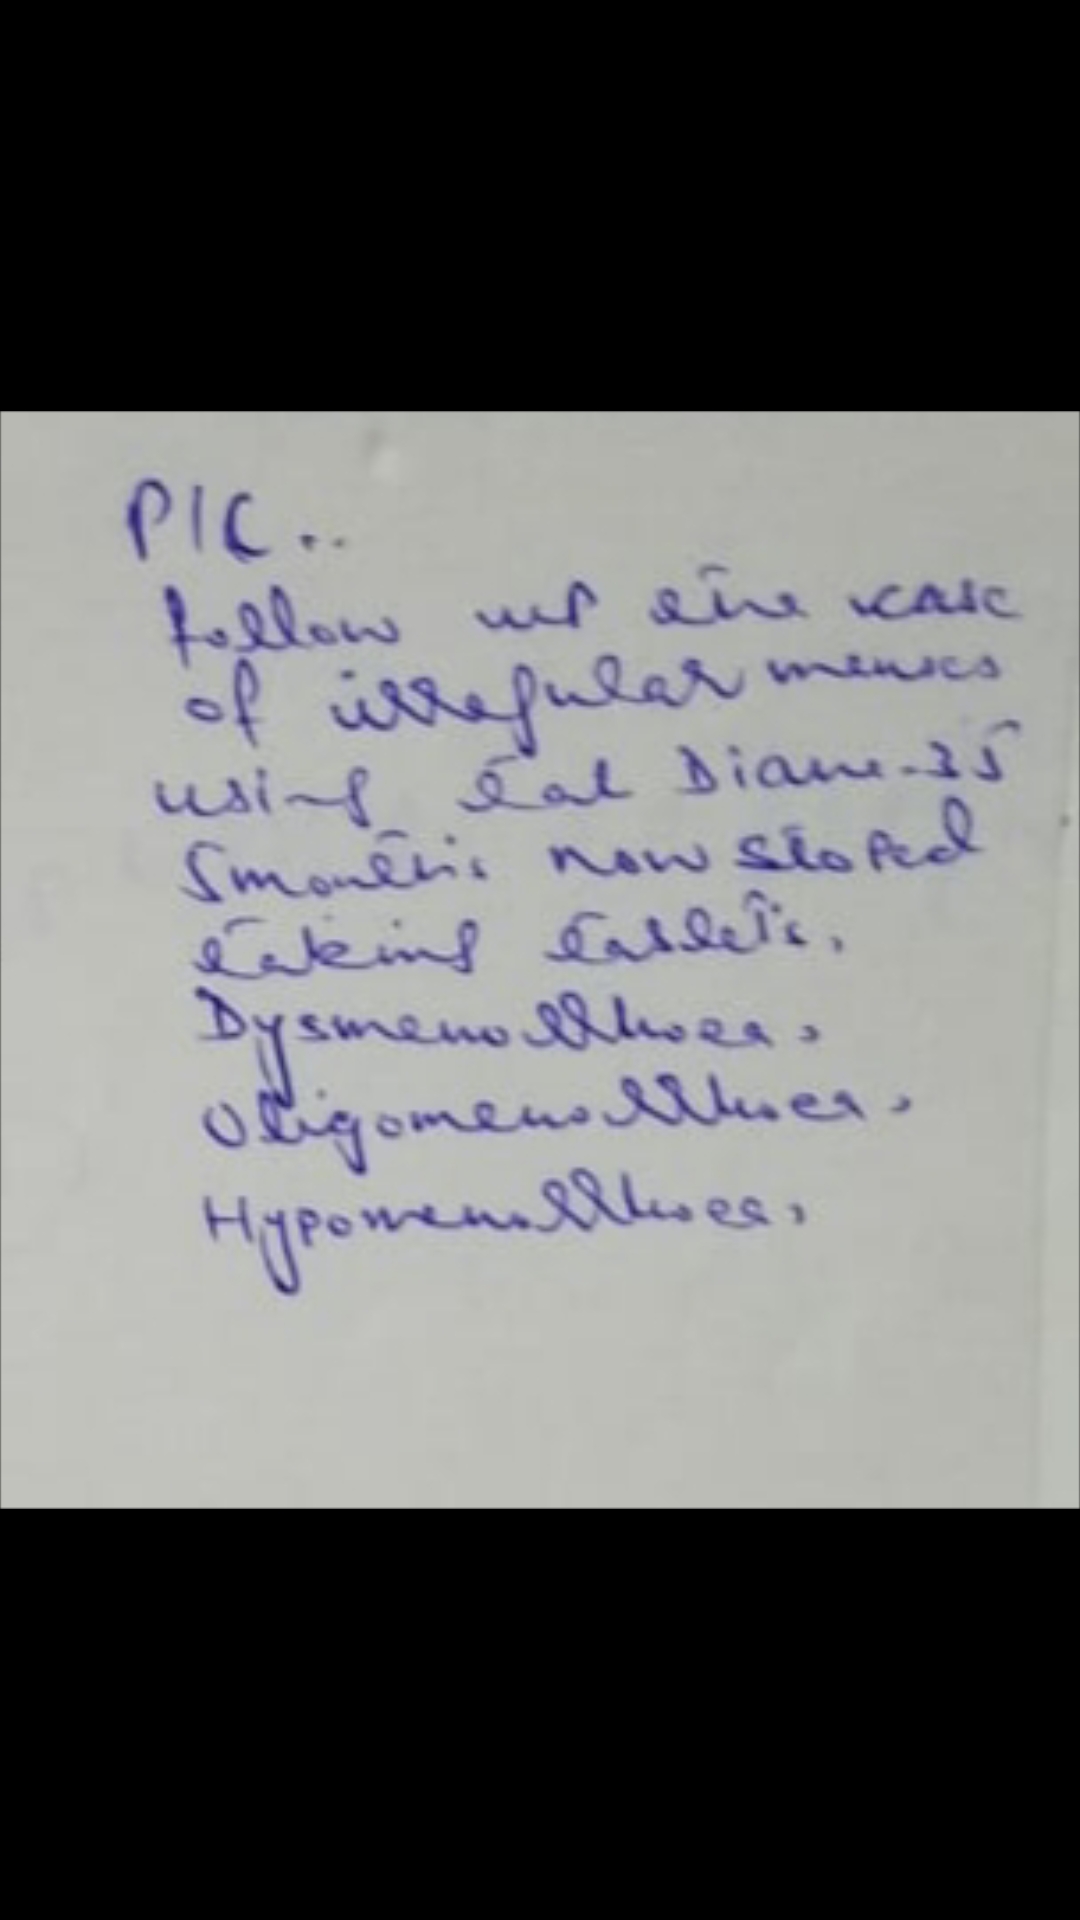 P/C..
follow up the case
of irregular menses
using tab Diane-35
5months now stoped
taking tablets.
Dysmenorrhoea,
Oligomenorrhoea,
Hypomenorrhoea,